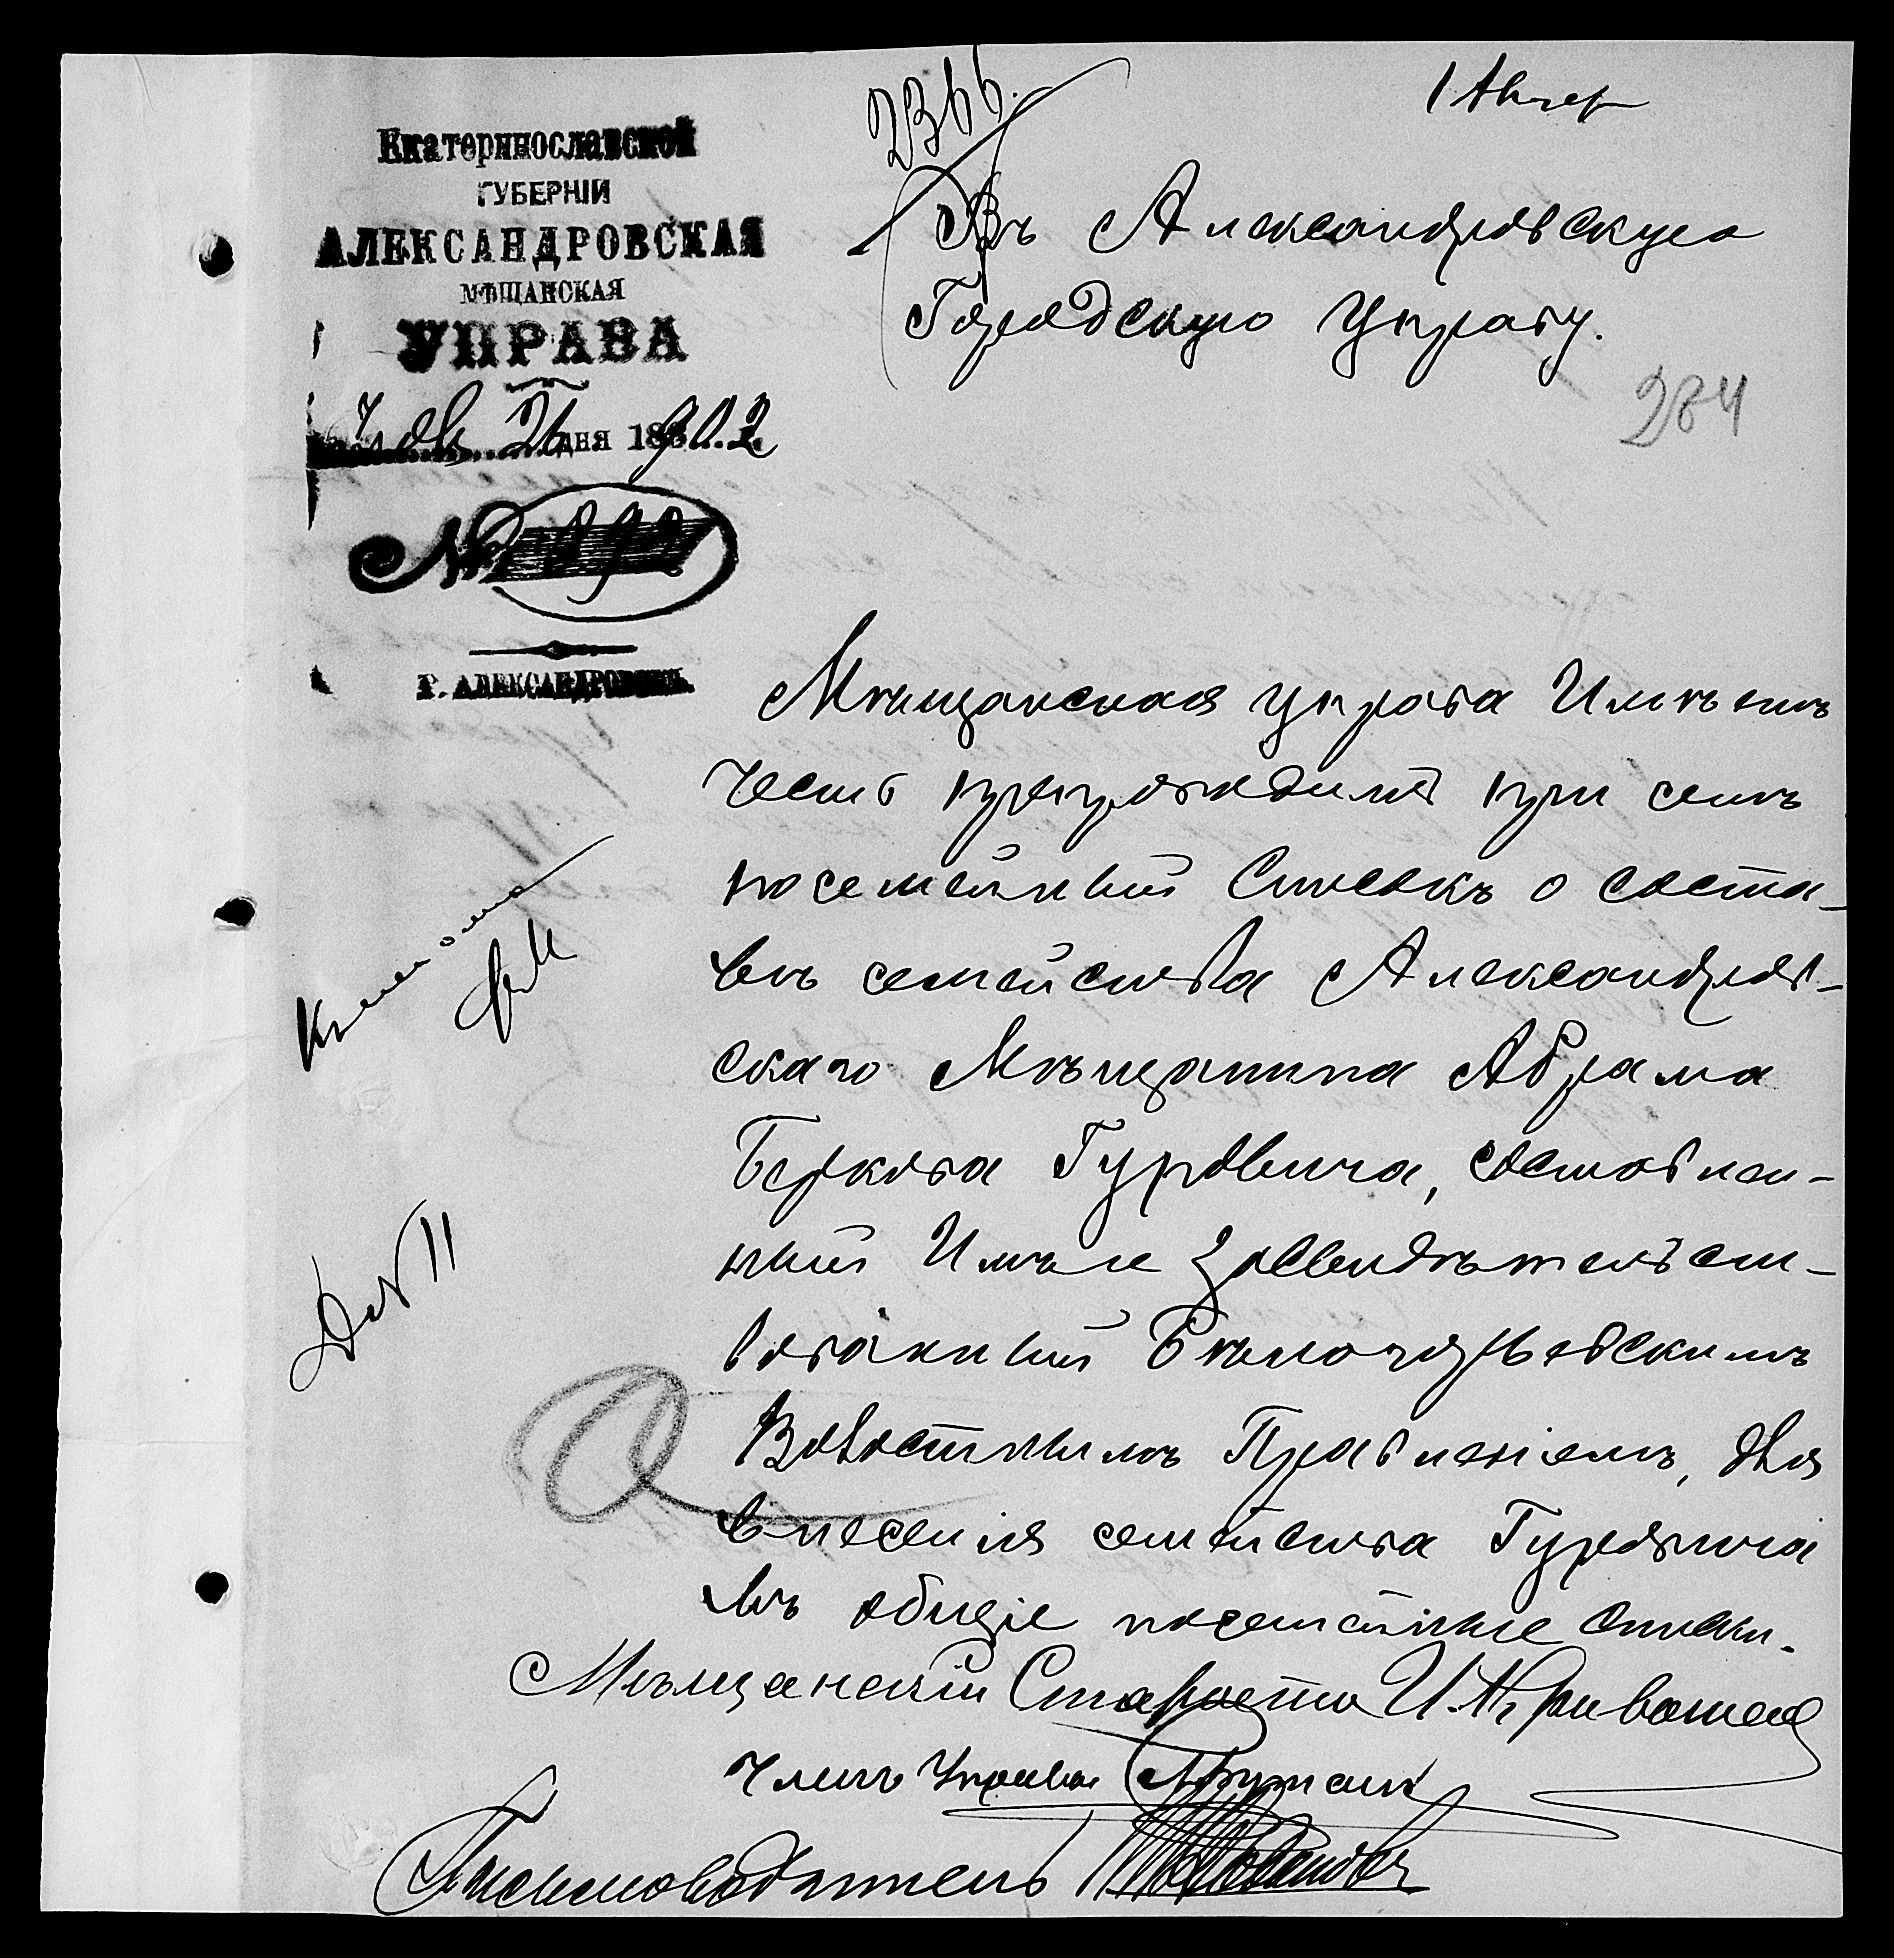 Екатеринославской
ГУБЕРНІИ
АЛЕКСАНДРОВСКАЯ
МѢЩАНСКАЯ
УПРАВА
26 дня 1902
№
Г. АЛЕКСАНДРОВСКЪ.
2366.
Въ Александровскую
Городскую Управу.
284
Мѣщанская управа Имѣетъ
честь препроводить при семъ
посемейный Списокъ о соста-
вѣ семейства Александров-
скаго Мѣщанина Абрама
Беркова Гуровича, составлен-
ный И
засвидѣтельст-
вованный
Волостнымъ Правленіемъ, для
внесенія семейства Гуровича
въ общіе посемейные списки.
Мѣщанскій Староста И.
Членъ Управы
Письмоводитель